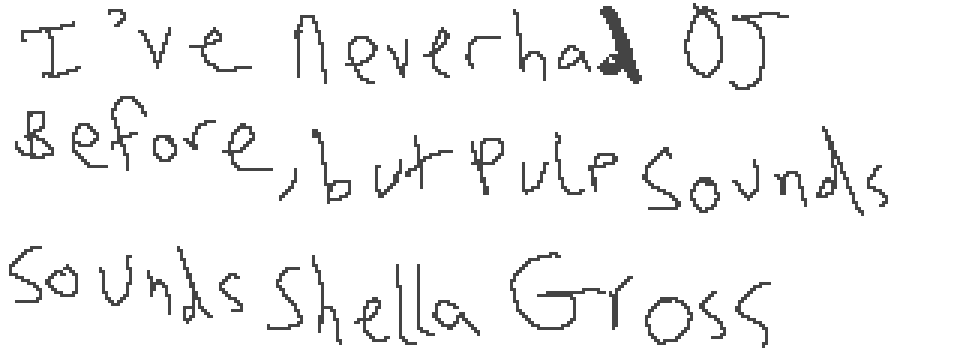 I've never had OJ
Before, but Pulp sounds
sounds shella Gross